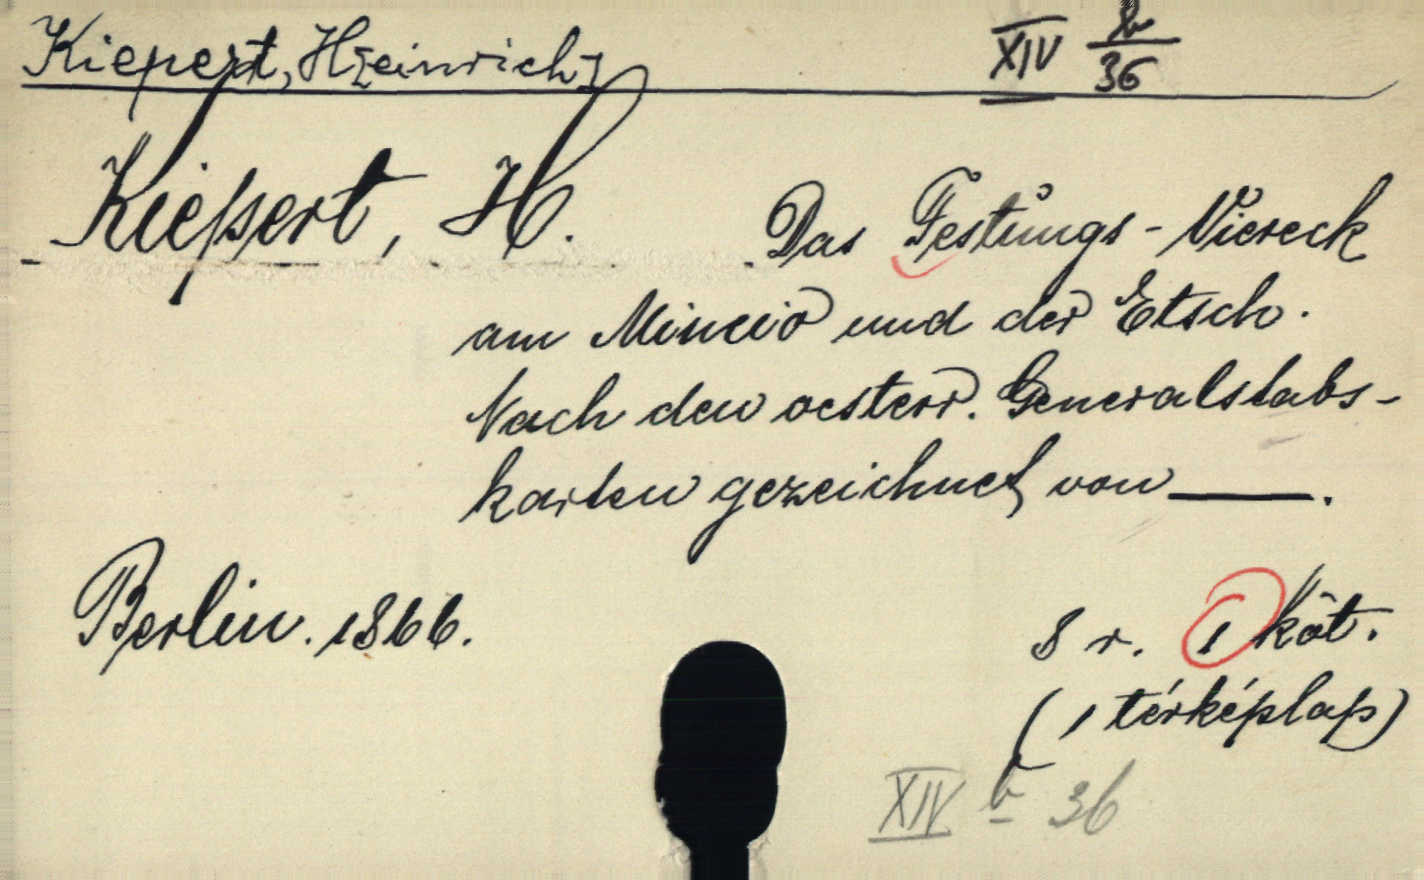 Kiepert, H[einrich]
XIV b/36
Kiepert, H. Das Festungs-Viereck
am Mincio und der Etsch.
Nach den oesterr. Generalstabs-
karten gezeichnet von ——.
Berlin. 1866.
8 r. 1 köt.
(1 térképlap)
XIV b 36